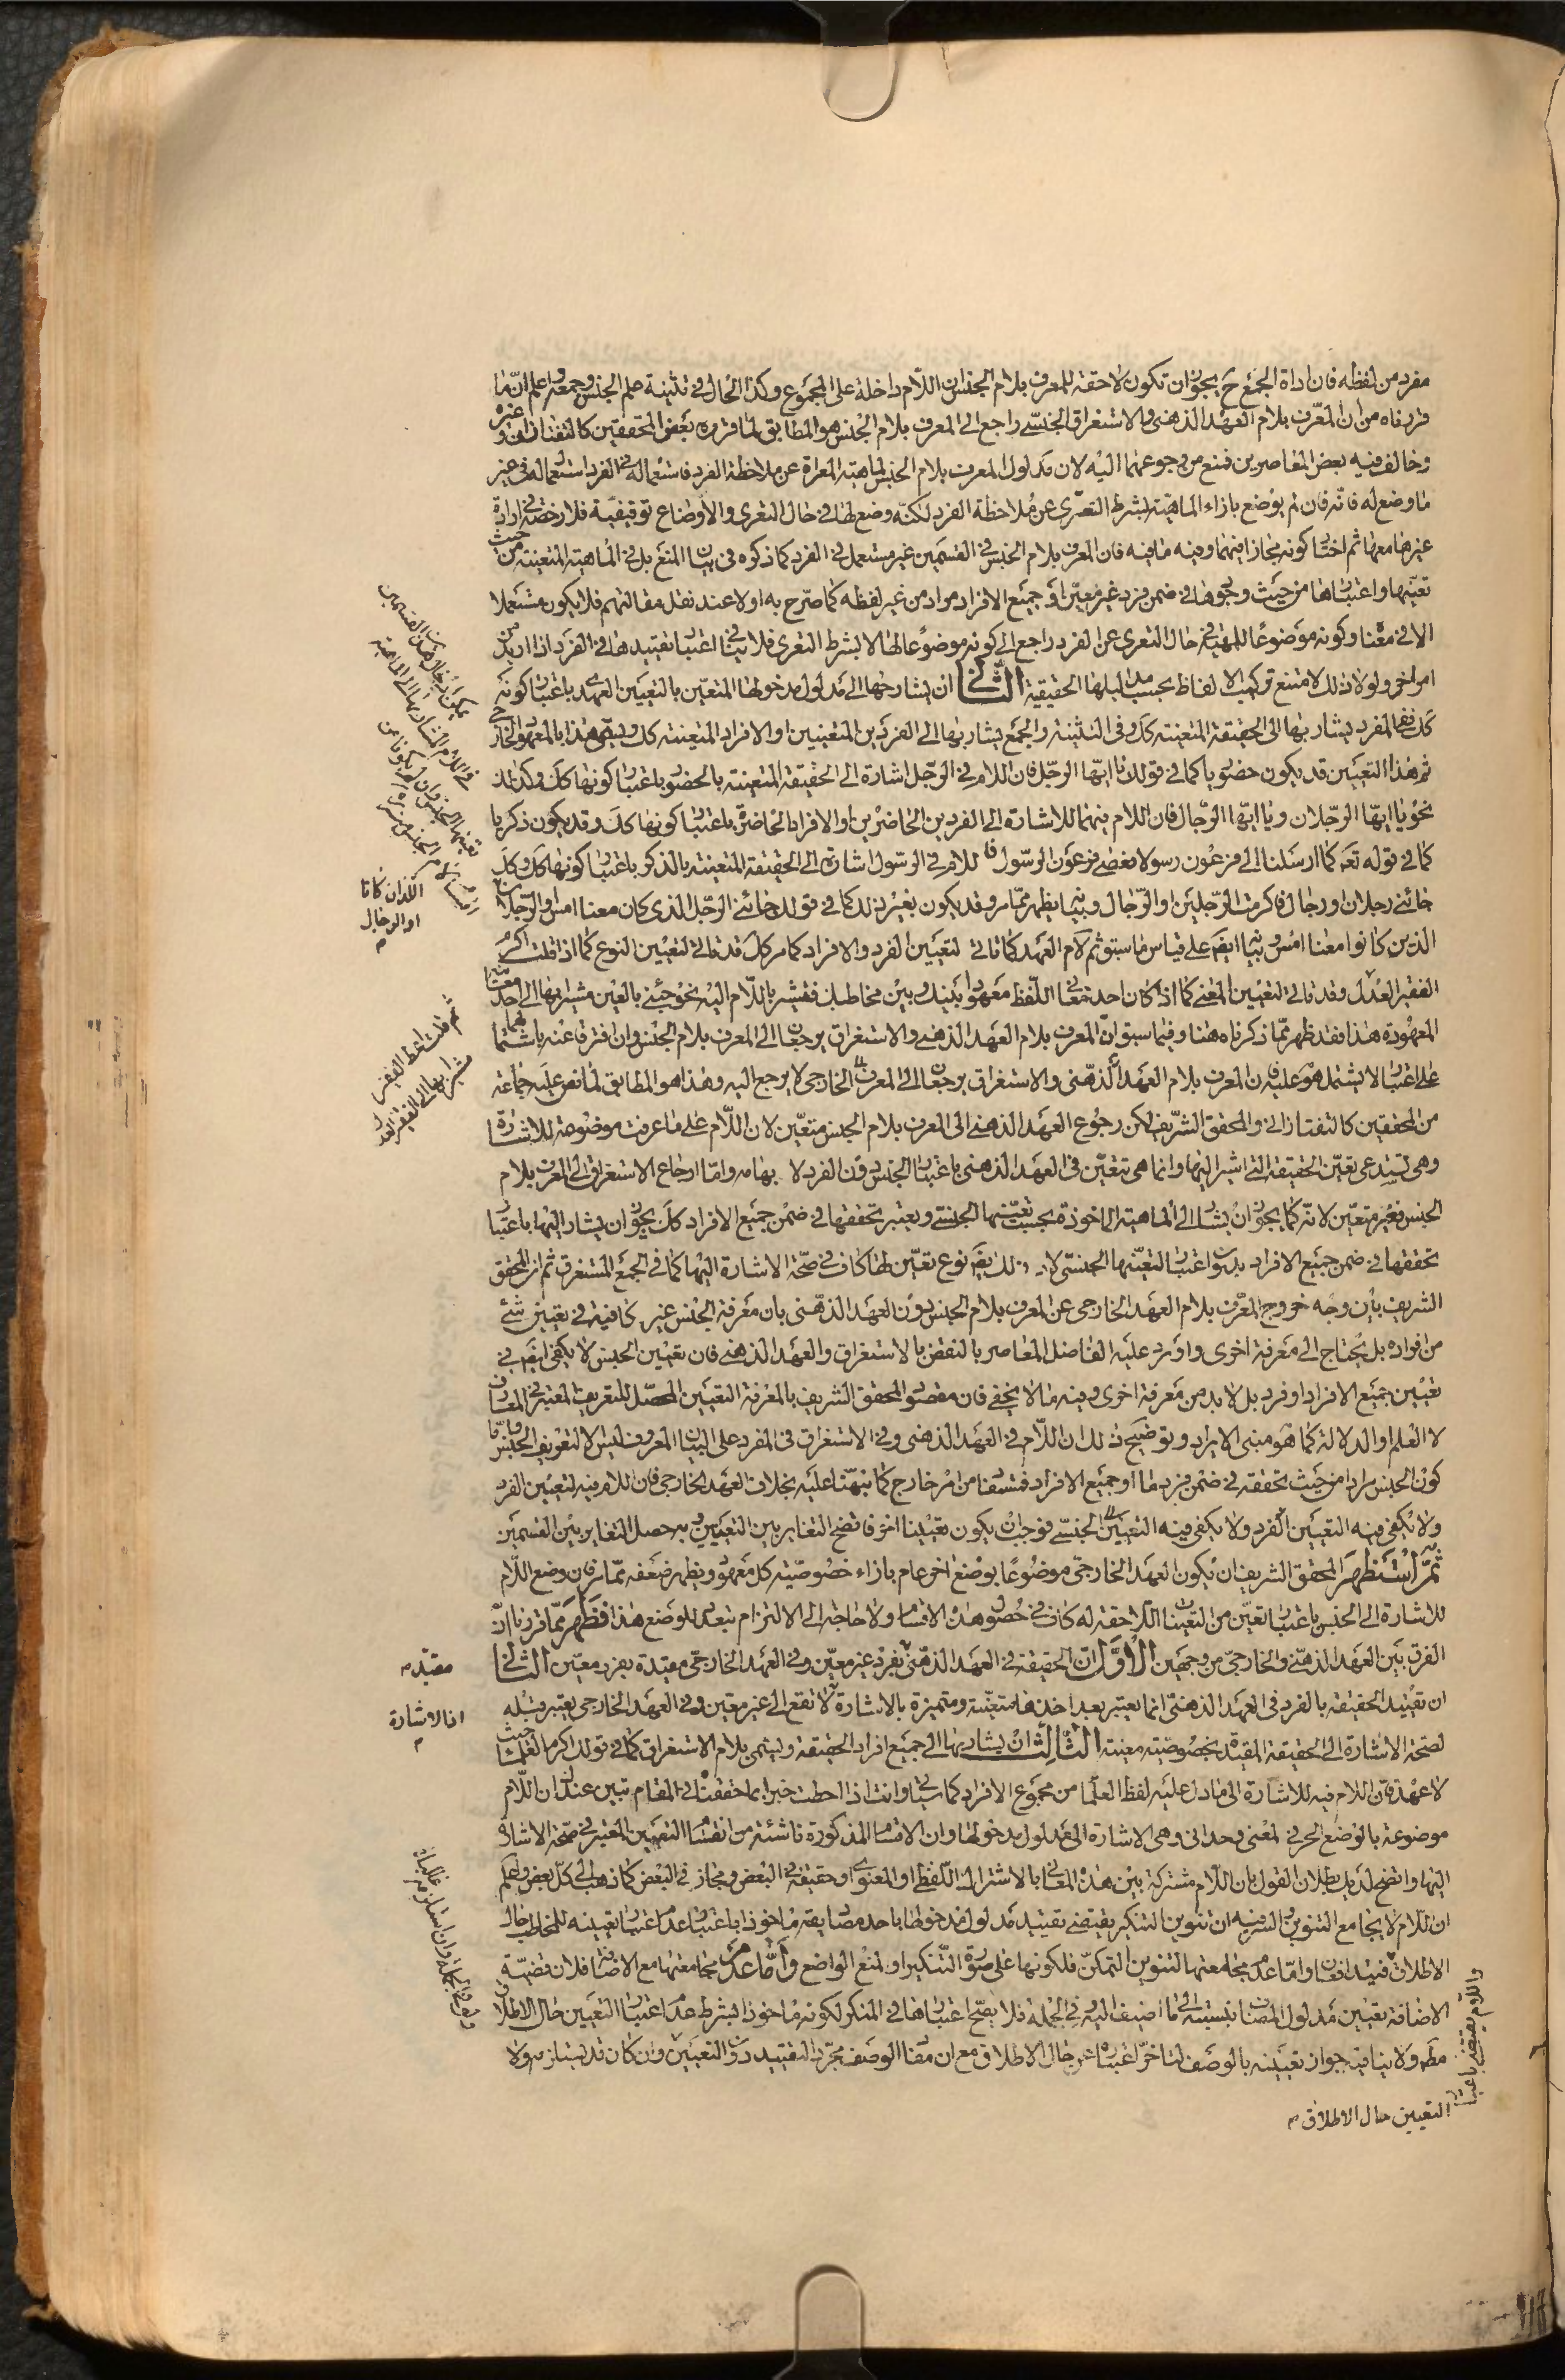 مفرد من لفظه فان اداة الجمع ح يجوز ان تكون لاحقة للمعرف بلام الجنس لا ان اللام داخلة على المجموع وكذا الحال في تثنية علم الجنس وجمعه واعلم ان ما
قررناه من ان المعرف بلام العهد الذهنى والاستغراق الجنسي راجع الى المعرف بلام الجنس هو المطابق لما قرره بعض المحققين كالتفتازانى وغيره
وخالف فيه بعض المعاصرين فمنع من رجوعهما اليه لان مدلول المعرف بلام الجنس الماهية المعراة عن ملاحظة الفرد فاستعماله في الفرد استعمال له في غير
ما وضع له فانه فان لم يوضع بازاء الماهية بشرط التعرى عن ملاحظة الفرد لكنه وضع لها في حال التعرى والاوضاع توقيفية فلا رخصة في ارادة
غيرها معها ثم اختار كونه مجازا فيهما وفيه ما فيه فان المعرف بلام الجنس في القسمين غير مستعمل في الفرد كما ذكره فى بيان المنع بل في الماهية المتعينة من حيث
تعينها واعتبارها من حيث وجودها في ضمن فرد غير معين او جميع الافراد مراد من غير لفظه كما صرح به اولا عند نقل مقالتهم فلا يكون مستعملا
الا في معناه وكونه موضوعا للماهية في حال التعرى عن الفرد راجع الى كونه موضوعا لها لا بشرط التعرى فلا ينافي اعتبار تقييدها في الفرد اذا اريد من
امر اخر ولولا ذلك لامتنع تركيب الالفاظ بحسب مداليلها الحقيقية الثانى ان يشار بها الى مدلول مدخولها المتعين بالتعيين العهدى باعتبار كونه
كك ففى المفرد يشار بها الى الحقيقة المتعينة كك وفى التثنية والجمع يشار بها الى الفردين المتعينين او الافراد المتعينة كك ويسمى هذا بالمعهود الخارجى
ثم هذا التعيين قد يكون حضوريا كما في قولك يا ايها الرجل فان اللام في الرجل اشارة الى الحقيقة المتعينة بالحضور باعتبار كونها كك وكذلك
نحو يا ايها الرجلان ويا ايها الرجال فان اللام فيهما للاشارة الى الفردين الحاضرين او الافراد الحاضرة باعتبار كونها كك وقد يكون ذكريا
كما في قوله تعه كما ارسلنا الى فرعون رسولا فعصى فرعون الرسول فاللام في الرسول اشارة الى الحقيقة المتعينة بالذكر باعتبار كونها كك وكك
جائنى رجلان او رجال فاكرمت الرجلين او الرجال وبيانه يظهر مما مر وقد يكون بغير ذلك كما في قولك جائنى الرجل الذى كان معنا امس او الرجلان
الذين كانوا معنا امس وبيانه ايضا على قياس ما سبق ثم لام العهد كما تاتى لتعيين الفرد والافراد كما مر كك قد تاتى لتعيين النوع كما اذا قلت اكرم
الفقير العدل وقد تاتى لتعيين المعنى كما اذا كان احد معانى اللفظ معهودا بينك وبين مخاطبك فتشير باللام اليه نحو جئنى بالعين مشيرا بها الى احد معانيها
المعهودة هذا فقد ظهر مما ذكرناه هنا وفيما سبق ان المعرف بلام العهد الذهنى والاستغراق يرجعان الى المعرف بلام الجنس وان افترقا عنه باشتمالهما
على اعتبار لا يشتمل هو عليه وان المعرف بلام العهد الخارجى لا يرجع اليه وهذا هو المطابق لما نص عليه جماعة
من المحققين كالتفتازانى والمحقق الشريف لكن رجوع العهد الذهنى الى المعرف بلام الجنس متعين لان اللام على ما عرفت موضوعة للاشارة
وهى تستدعى تعين الحقيقة التى اشير اليها وانما هى تتعين فى العهد الذهنى باعتبار الجنس دون الفرد لابهامه واما ارجاع الاستغراق الى المعرف بلام
الجنس فغير متعين لانه كما يجوز ان يشار الى الماهية الماخوذة بحسب تعينها الجنسى ويعتبر تحققها في ضمن جميع الافراد كك يجوز ان يشار اليها باعتبار
تحققها في ضمن جميع الافراد بدون اعتبار لتعينها الجنسى لان ذلك ايضا نوع تعين لها كاف في صحة الاشارة اليها كما في الجمع المستغرق ثم ان المحقق
الشريف بين وجه خروج المعرف بلام العهد الخارجى عن المعرف بلام الجنس دون العهد الذهنى بان معرفة الجنس غير كافية في تعيين شئ
من افراده بل يحتاج الى معرفة اخرى واورد عليه الفاضل المعاصر بالنقض بالاستغراق والعهد الذهنى فان تعيين الجنس لا يكفى ايضا في
تعيين جميع الافراد او فرد بل لا بد من معرفة اخرى وفيه ما لا يخفى فان مقصود المحقق الشريف بالمعرفة التعيين المحصل للتعريف المعتبر في المعارف
لا العلم او الدلالة كما هو مبنى الايراد وتوضيح ذلك ان اللام في العهد الذهنى وفي الاستغراق فى المفرد على البيان المعروف ليس الا لتعريف الجنس واما
كون الجنس مرادا من حيث تحققه في ضمن فرد ما او جميع الافراد فمستفاد من امر خارج كما نبهنا عليه بخلاف العهد الخارجى فان اللام فيه لتعيين الفرد
ولا يكفى فيه التعيين الجنسى فوجب ان يكون تعيينا اخر فاتضح التغاير بين التعيينين وبه حصل التغاير بين القسمين
ثم استظهر المحقق الشريف ان يكون العهد الخارجى موضوعا بوضع اخر عام بازاء خصوصية كل معهود ويظهر ضعفه مما مر فان وضع اللام
للاشارة الى الجنس باعتبار تعين من التعينات اللاحقة له كاف في حصول هذه الاقسام ولا حاجة الى الالتزام بتعدد الوضع هذا فظهر مما قررنا ان
الفرق بين العهد الذهنى والخارجى من وجهين الاول ان الحقيقة في العهد الذهنى بفرد غير معين وفي العهد الخارجى مقيدة بفرد معين الثانى
ان تقييد الحقيقة بالفرد فى العهد الذهنى انما يعتبر بعد اخذها متعينة ومتميزة بالاشارة لا تقع الى غير معين وفي العهد الخارجى يعتبر قبله
لصحة الاشارة الى الحقيقة المقيدة بخصوصية معينة الثالث ان يشار بها الى جميع افراد الحقيقة ويسمى بلام الاستغراق كما في قولك اكرم العلماء حيث
لا عهد فان اللام فيه للاشارة الى ما دل عليه لفظ العلماء من مجموع الافراد كما ياتى وانت اذا احطت خبرا بما حققنا في المقام تبين عندك ان اللام
موضوعة بالوضع الحرفى لمعنى وحدانى وهى الاشارة الى مدلول مدخولها وان الاقسام المذكورة ناشئة من انقسام التعيين المعتبر في صحة الاشارة
اليها واتضح لديك بطلان القول بان اللام مشتركة بين هذه المعانى بالاشتراك اللفظى او المعنوى او حقيقة في البعض ومجاز في البعض كما ذهب الى كل بعض واعلم
ان اللام لا يجامع التنوين والسر فيه ان تنوين التنكير يقتضى تقييد مدلول مدخولها باحد مصاديقه ماخوذا باعتبار عدم اعتبار تعيينه للمخاطب حال
الاطلاق فيتدافعان واما عدم مجامعتها لتنوين التمكن فلكونها على صورة التنكير او لمنع الواضع واما عدم مجامعتها مع الاضافة فلان قضية
الاضافة تعيين مدلول المضاف بنسبته الى ما اضيف اليه في الجملة فلا يصح اعتبارها في المنكر لكونه ماخوذا بشرط عدم اعتبار التعيين حال الاطلاق
مطه ولا ينافيه جواز تعيينه بالوصف لتاخر اعتباره عن حال الاطلاق مع ان مفاد الوصف مجرد التقييد دون التعيين وان كان قد يستلزمه ولا
اللذان كانا
او الرجال
ثم قلت اعط الفقير
مشيرا بها الى الفقير العدل
مقيدة
اذا لاشارة
واللام يقتضى باعتبار
التعيين حال الاطلاق